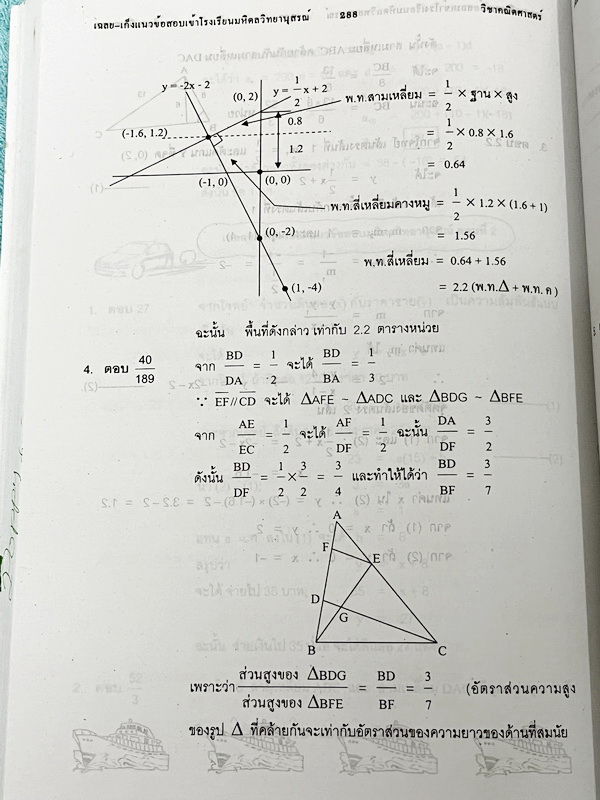 เฉลย-เก็งแนวข้อสอบเข้าโรงเรียนมหิดลวิทยานุสรณ์ 288 วิชาคณิตศาสตร์
y = -2x - 2
(0, 2)
y = 1/2 x + 2
พ.ท.สามเหลี่ยม = 1/2 × ฐาน × สูง
(-1.6, 1.2)
0.8
= 1/2 × 0.8 × 1.6
1.2
= 0.64
(-1, 0)
(0, 0)
พ.ท.สี่เหลี่ยมคางหมู = 1/2 × 1.2 × (1.6 + 1)
(0, -2)
= 1.56
พ.ท.สี่เหลี่ยม = 0.64 + 1.56
(1, -4)
= 2.2 (พ.ท.Δ + พ.ท. ค)
ฉะนั้น พื้นที่ดังกล่าว เท่ากับ 2.2 ตารางหน่วย
4. ตอบ 40/189 จาก BD/DA = 1/2 จะได้ BD/BA = 1/3
∵ EF//CD จะได้ ΔAFE ~ ΔADC และ ΔBDG ~ ΔBFE
จาก AE/EC = 1/2 จะได้ AF/DF = 1/2 ฉะนั้น DA/DF = 3/2
ดังนั้น BD/DF = 1/2 × 3/2 = 3/4 และทำให้ได้ว่า BD/BF = 3/7
A
F
E
D
G
B
C
เพราะว่า ส่วนสูงของ ΔBDG/ส่วนสูงของ ΔBFE = BD/BF = 3/7 (อัตราส่วนความสูง
ของรูป Δ ที่คล้ายกันจะเท่ากับอัตราส่วนของความยาวของด้านที่สมนัย